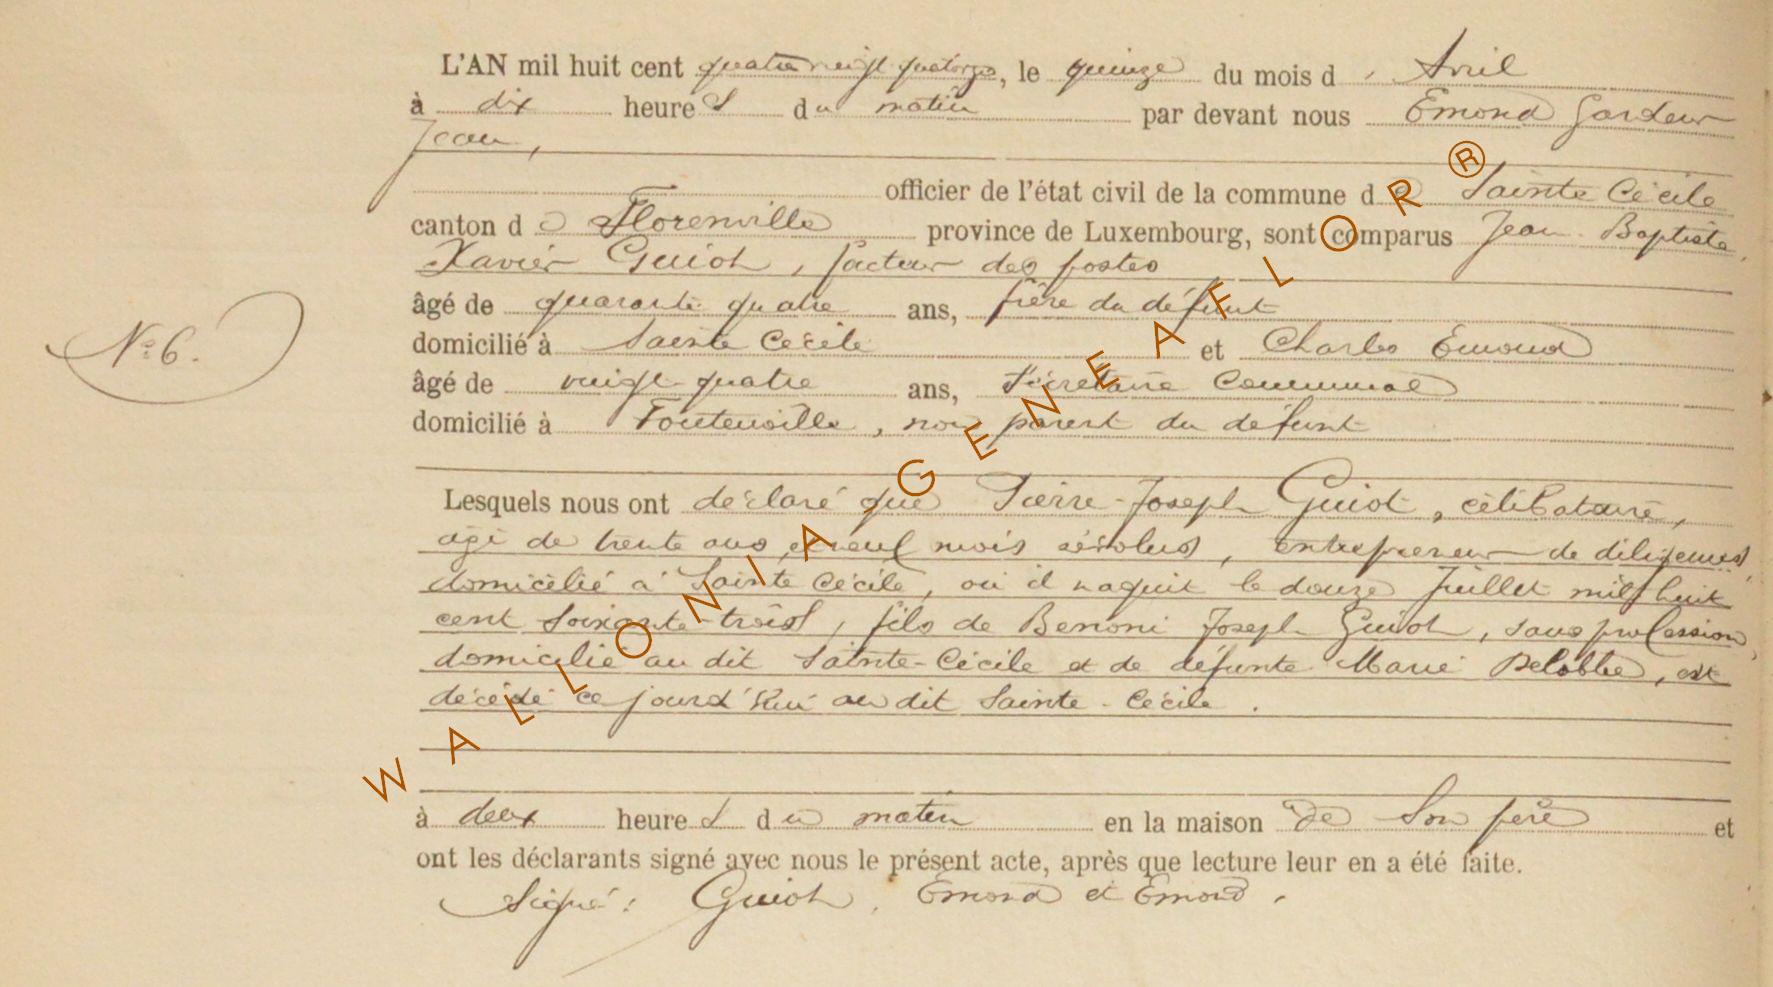 L'AN mil huit cent quatre vingt quatorze, le quinze du mois d' Avril
à dix heures du matin par devant nous Emond Gardeur
Jean,
officier de l'état civil de la commune de Sainte Cécile
canton de Florenville province de Luxembourg, sont comparus Jean Baptiste
Xavier Guiot, facteur des postes
âgé de quarante quatre ans, frère du défunt
N° 6.
domicilié à Sainte Cécile et Charles Emond
âgé de vingt quatre ans, Secrétaire Communal
domicilié à Fontenoille, non parent du defunt
Lesquels nous ont déclaré que Pierre-Joseph Guiot, célibataire,
âgé de trente ans et neuf mois résolus, entrepreneur de diligences,
domicilié à Sainte Cécile, où il naquit le douze Juillet mil huit
cent soixante-trois, fils de Benoni Joseph Guiot, sans profession,
domicilié au dit Sainte-Cécile et de défunte Marie Delobbe, est
décédé ce jourd'hui au dit Sainte-Cécile.
à deux heures du matin en la maison de Son père et
ont les déclarants signé avec nous le présent acte, après que lecture leur en a été faite.
Signé: Guiot, Emond et Emond.
WALLONIA GENEAFLOR ®